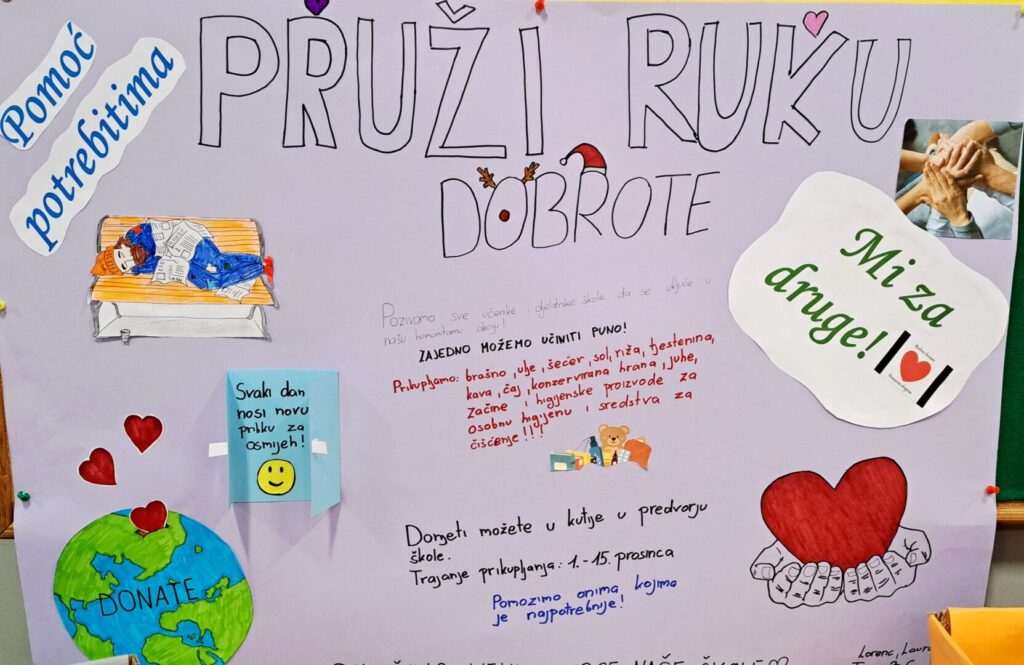 Pomoć
potrebitima
PRUŽI RUKU
DOBROTE
Mi za
druge!
Pozivamo sve učenike i djelatnike škole da se uključe u
našu humanitarnu akciju!
ZAJEDNO MOŽEMO UČINITI PUNO!
Prikupljamo: brašno, ulje, šećer, sol, riža, tjestenina,
kava, čaj, konzervirana hrana, juhe,
začine i higijenske proizvode za
osobnu higijenu i sredstva za
čišćenje!!!
Svaki dan
nosi novu
priliku za
osmijeh!
Donijeti možete u kutije u predvorju
škole.
Trajanje prikupljanja: 1.-15. prosinca
Pomozimo onima kojima
je najpotrebnije!
DONATE
NAŠE
Lorena,